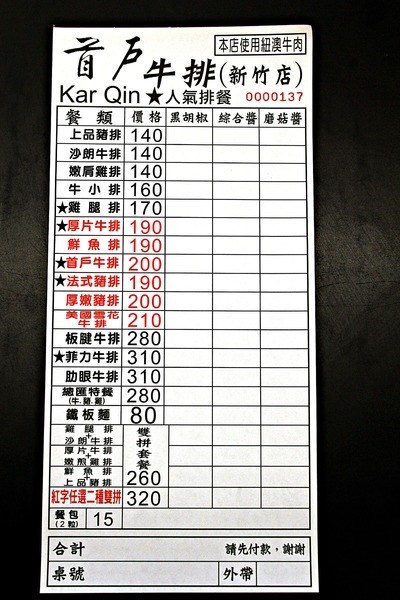 本店使用紐澳牛肉
首戶牛排(新竹店)
Kar Qin ★人氣排餐 0000137
餐類 價格 黑胡椒 綜合醬 磨菇醬
上品豬排 140
沙朗牛排 140
嫩肩雞排 140
牛小排 160
★雞腿排 170
★厚片牛排 190
鮮魚排 190
★首戶牛排 200
★法式豬排 190
厚嫩豬排 200
美國雪花牛排 210
板腱牛排 280
★菲力牛排 310
肋眼牛排 310
總匯特餐 280
(牛.豬.雞)
鐵板麵 80
雞腿排+沙朗牛排 雙拼套餐 260
厚片牛排+嫩煎雞排
鮮魚排+上品豬排
紅字任選二種雙拼 320
餐包(2粒) 15
合計 請先付款,謝謝
桌號 外帶